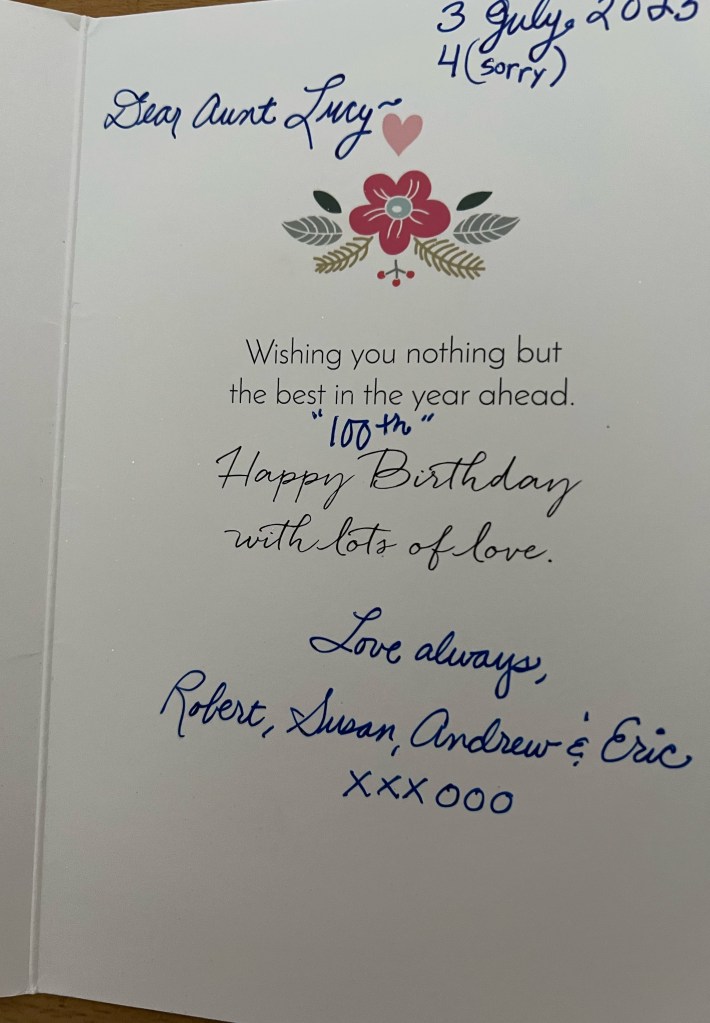 3 July, 2023
4 (sorry)
Dear Aunt Lucy~
Wishing you nothing but
the best in the year ahead.
"100th"
Happy Birthday
with lots of love.
Love always,
Robert, Susan, Andrew & Eric
XXX OOO